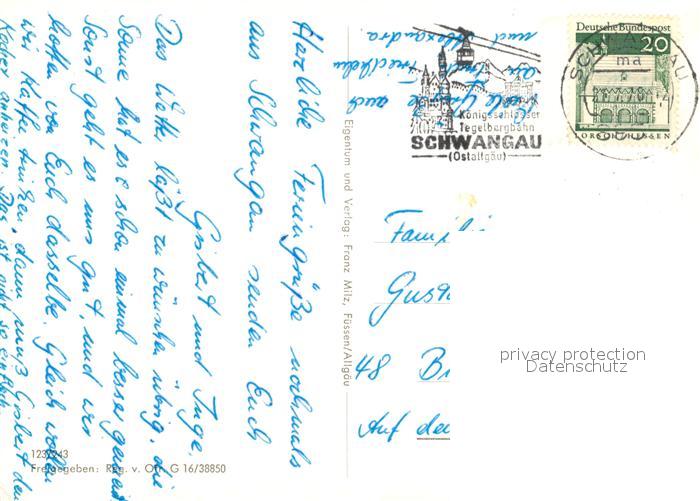 Herzliche Feriengrüße nochmals
aus Schwangau senden Euch
Gisbert und Inge.
Das Wetter läßt zu wünschen übrig, die
Sonne hat es schon einmal besser gemeint
Sonst geht es uns gut, und wir
hoffen von Euch dasselbe. Gleich wollen
wir Kaffee trinken, dann muß Gisbert den
Koffer anheizen. Das ist nicht so einfach.
Viele Grüße auch
an Friedhelm
und Alexandra.
Eigentum und Verlag: Franz Milz, Füssen/Allgäu
123/243
Freigegeben: Reg. v. Obb. G 16/38850
Königsschlösser
Tegelbergbahn
SCHWANGAU
(Ostallgäu)
Deutsche Bundespost
20
LORSCH/HESSEN
SCHWANGAU
ma
Fami
Gus
48 B
Auf de
privacy protection
Datenschutz